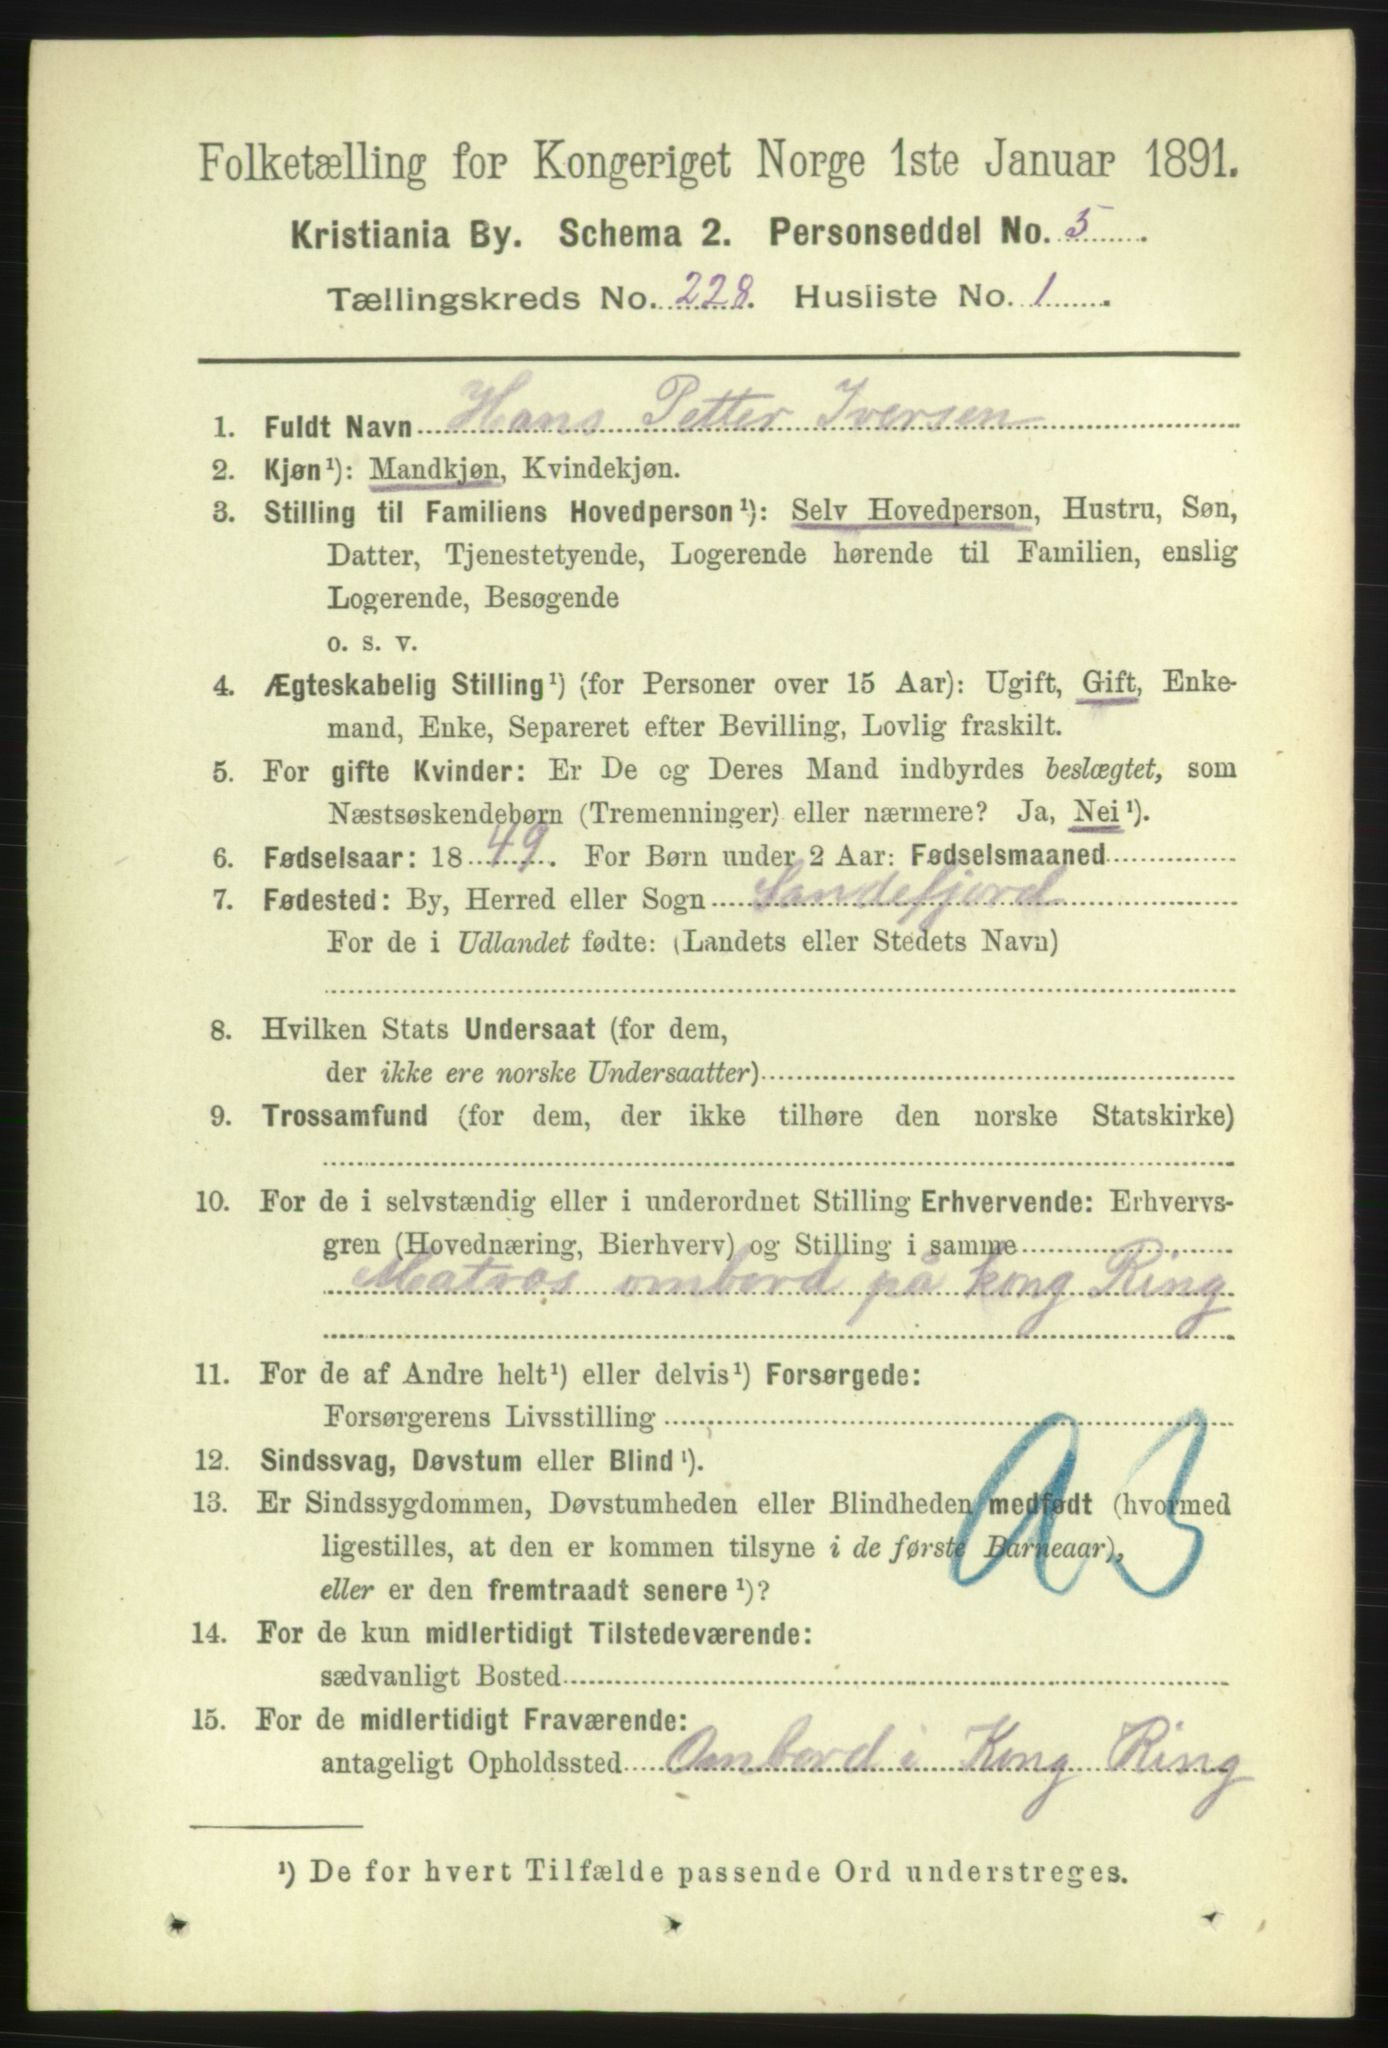 Folketælling for Kongeriget Norge 1ste Januar 1891.
Kristiania By. Schema 2. Personseddel No. 5.
Tællingskreds No. 228. Husliste No. 1.
1. Fuldt Navn Hans Petter Iversen
2. Kjøn¹): Mandkjøn, Kvindekjøn.
3. Stilling til Familiens Hovedperson¹): Selv Hovedperson, Hustru, Søn,
Datter, Tjenestetyende, Logerende hørende til Familien, enslig
Logerende, Besøgende
o. s. v.
4. Ægteskabelig Stilling¹) (for Personer over 15 Aar): Ugift, Gift, Enke-
mand, Enke, Separeret efter Bevilling, Lovlig fraskilt.
5. For gifte Kvinder: Er De og Deres Mand indbyrdes beslægtet, som
Næstsøskendebørn (Tremenninger) eller nærmere? Ja, Nei¹).
6. Fødselsaar: 1849. For Børn under 2 Aar: Fødselsmaaned
7. Fødested: By, Herred eller Sogn Sandefjord
For de i Udlandet fødte: (Landets eller Stedets Navn)
8. Hvilken Stats Undersaat (for dem,
der ikke ere norske Undersaatter)
9. Trossamfund (for dem, der ikke tilhøre den norske Statskirke)
10. For de i selvstændig eller i underordnet Stilling Erhvervende: Erhvervs-
gren (Hovednæring, Bierhverv) og Stilling i samme
Matros ombord på Kong Ring
11. For de af Andre helt¹) eller delvis¹) Forsørgede:
Forsørgerens Livsstilling
12. Sindssvag, Døvstum eller Blind¹).
13. Er Sindssygdommen, Døvstumheden eller Blindheden medfødt (hvormed
ligestilles, at den er kommen tilsyne i de første Barneaar),
eller er den fremtraadt senere¹)?
14. For de kun midlertidigt Tilstedeværende:
sædvanligt Bosted
15. For de midlertidigt Fraværende:
antageligt Opholdssted Ombord i Kong Ring
¹) De for hvert Tilfælde passende Ord understreges.